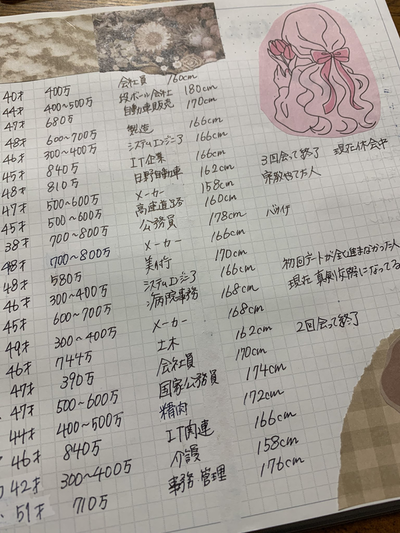 40才 400万 会社員 160cm
44才 400~500万 段ボール会社 180cm
47才 680万 自動車販売 170cm
48才 600~700万 製造 166cm
46才 300~400万 システムエンジニア 166cm
45才 840万 IT企業 166cm 3回会って終了 現在休会中
48才 810万 日野自動車 162cm
47才 500~600万 メーカー 158cm
45才 500~600万 高速道路 160cm
38才 700~800万 公務員 178cm バツイチ
48才 700~800万 メーカー 166cm
48才 580万 170cm 初回デートが全く進まなかった人
46才 300~400万 システムエンジニア 166cm 現在 真剣交際になってる
45才 600~700万 病院事務 168cm
49才 300~400万 メーカー 168cm
46才 744万 土木 162cm 2回会って終了
47才 390万 会社員 170cm
47才 500~600万 国家公務員 174cm
44才 400~500万 精肉 172cm
46才 840万 IT関連 166cm
42才 300~400万 介護 158cm
51才 710万 事務・管理 176cm